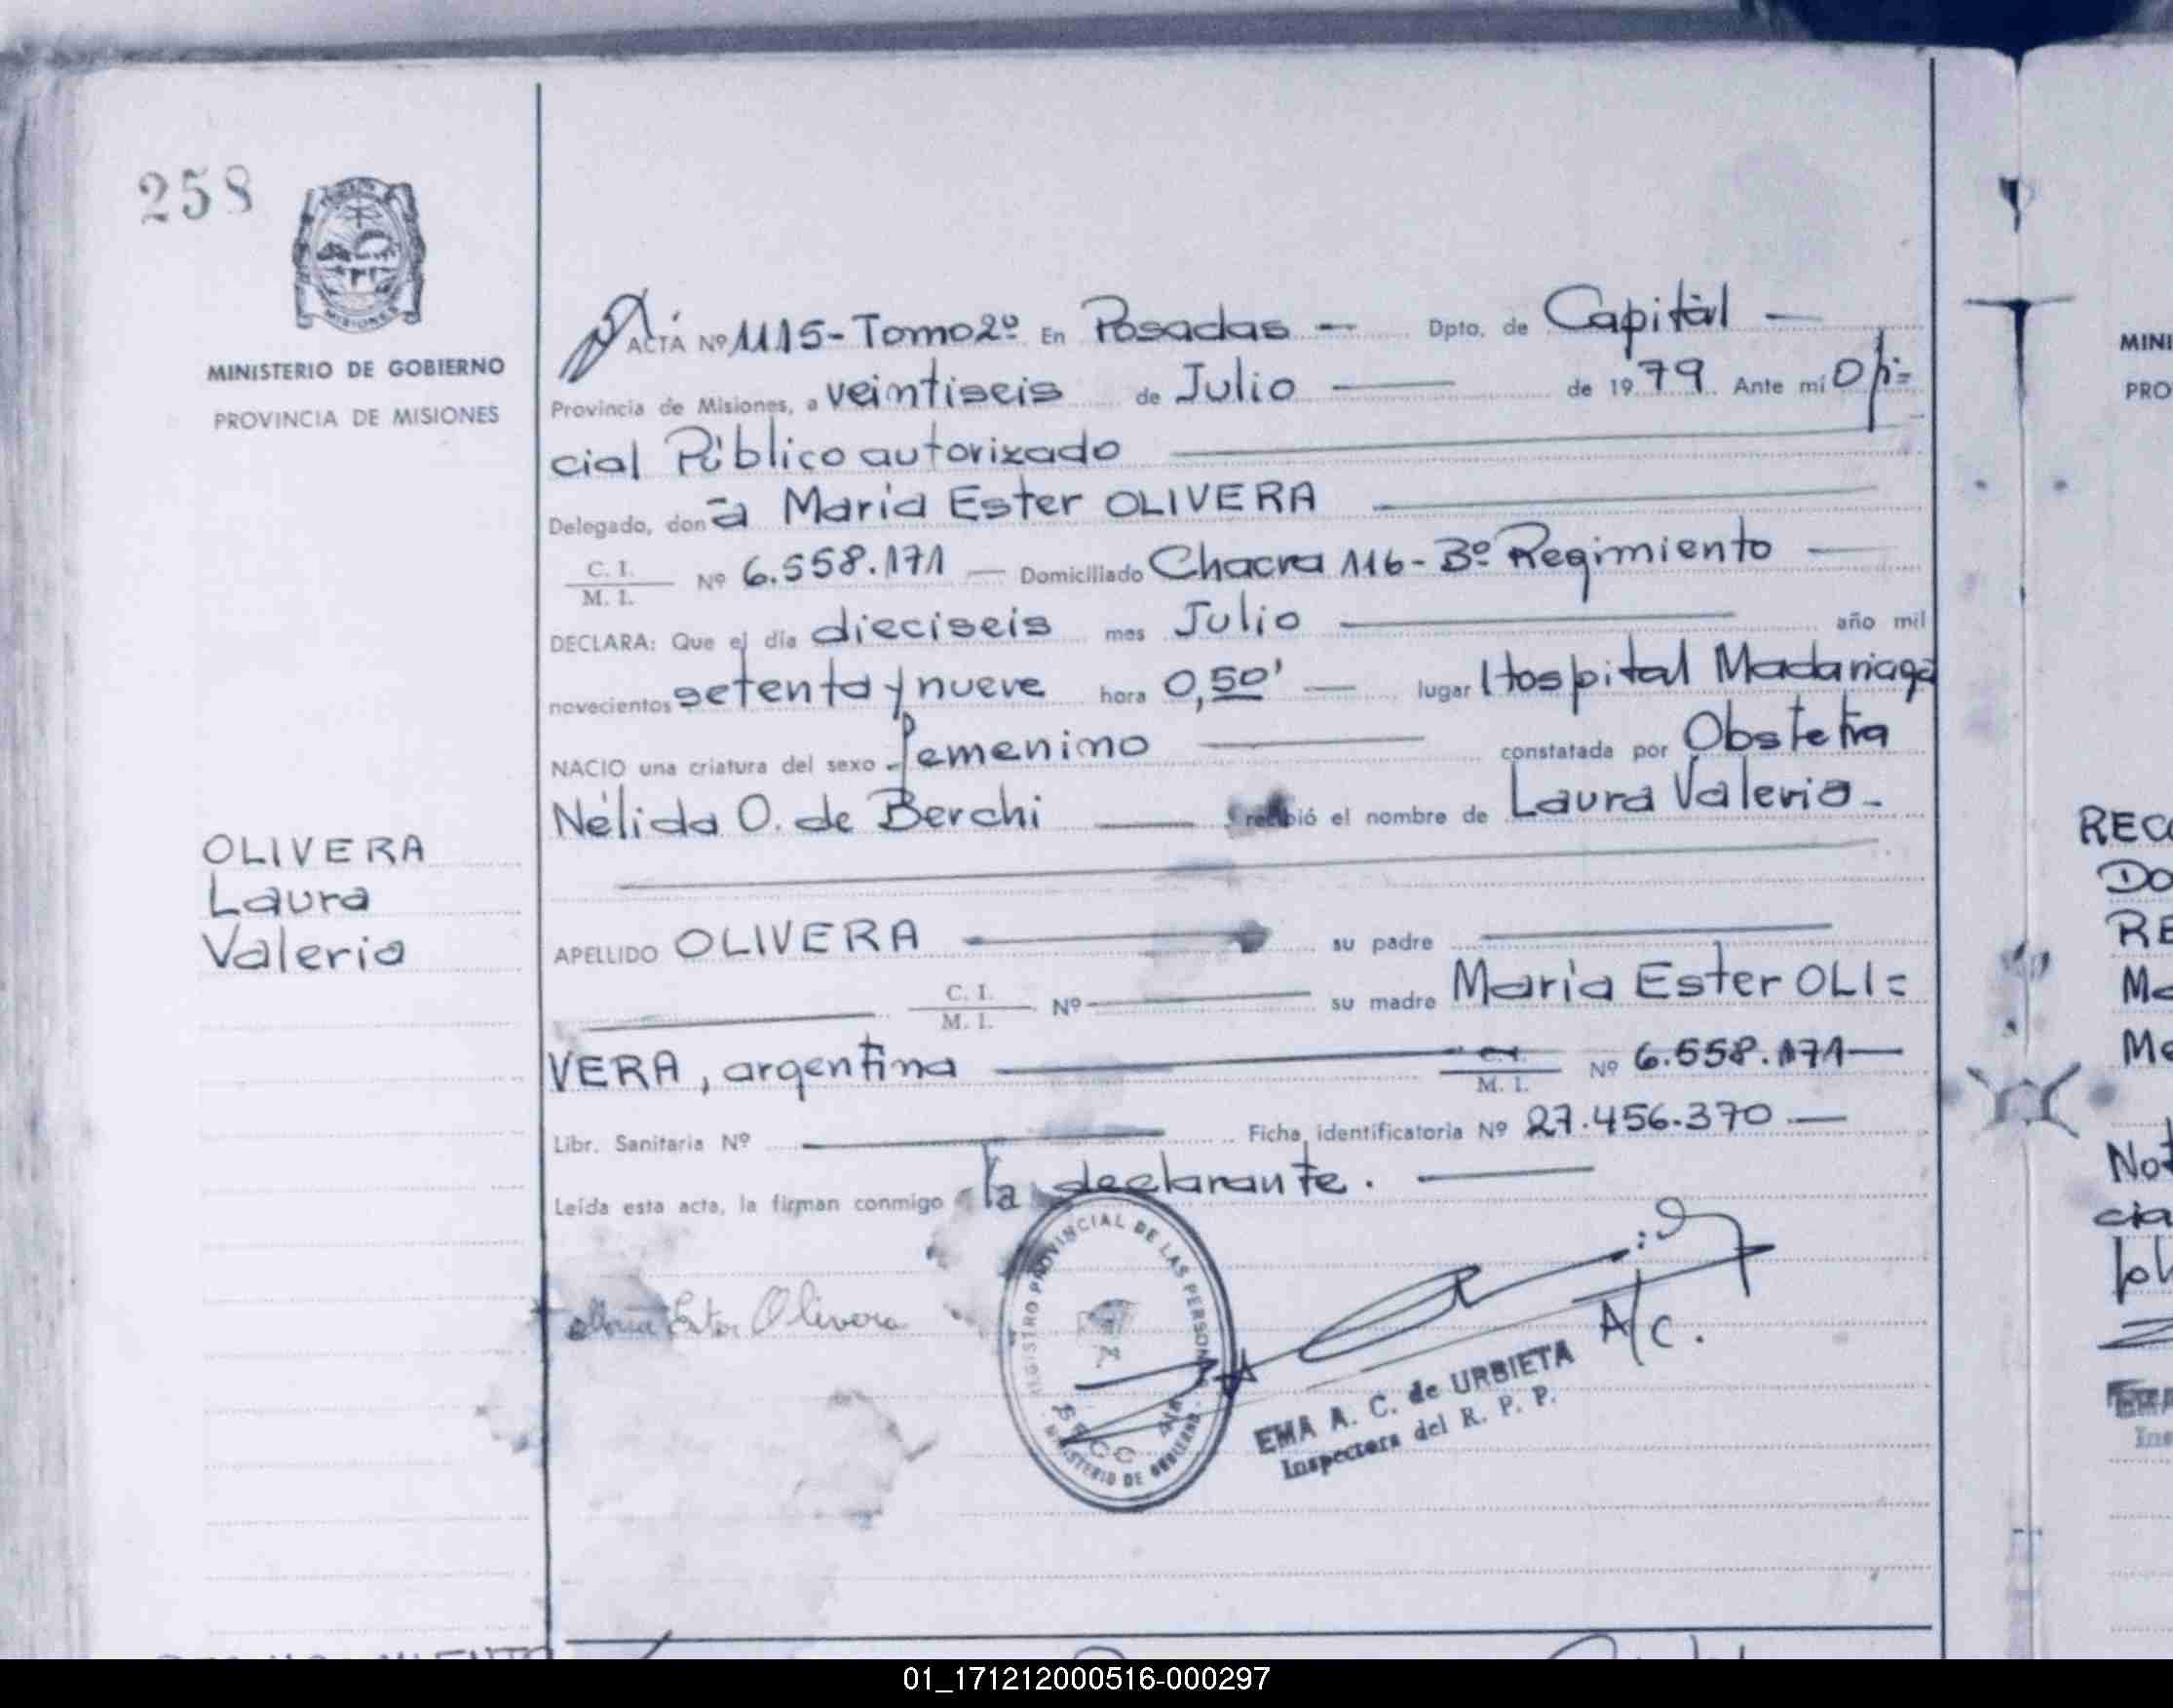 258
MISIONES
MINISTERIO DE GOBIERNO
PROVINCIA DE MISIONES
OLIVERA
Laura
Valeria
ACTA Nº 1115-Tomo 2º En Posadas — Dpto. de Capital —
Provincia de Misiones, a veintiseis de Julio — de 1979 Ante mí Ofi=
cial Público autorizado
Delegado, don a Maria Ester OLIVERA
C. I. / M. I. Nº 6.558.171 — Domiciliado Chacra 116-Bº Regimiento —
DECLARA: Que el día dieciseis mes Julio — año mil
novecientos setenta y nueve hora 0,50' — lugar Hospital Madariaga
NACIO una criatura del sexo femenino — constatada por Obstetra
Nélida O. de Berchi — recibió el nombre de Laura Valeria-
APELLIDO OLIVERA — su padre —
— C. I. / M. I. Nº — su madre Maria Ester OLI=
VERA, argentina — C. I. / M. I. Nº 6.558.171 —
Libr. Sanitaria Nº — Ficha identificatoria Nº 27.456.370 —
Leída esta acta, la firman conmigo la declarante. —
Maria Ester Olivera
REGISTRO PROVINCIAL DE LAS PERSONAS
MINISTERIO DE GOBIERNO
A/C.
EMA A. C. de URBIETA
Inspectora del R. P. P.
MINI
PRO
REC
Do
RE
Ma
Me
Not
cia
01_171212000516-000297